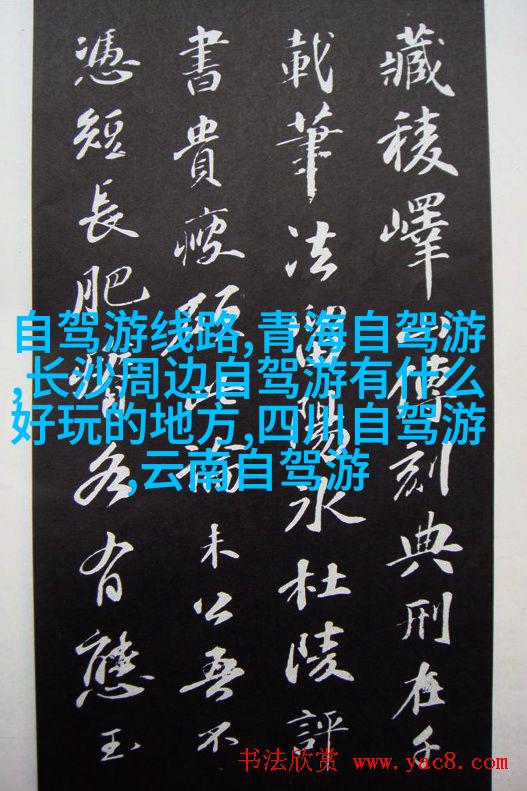 藏稜嶧山傳刻典刑在千
載筆法留陽氷杜陵評
書貴瘦硬此論未公吾不
憑短長肥瘦各有態玉
自驾游线路,青海自驾游
,长沙周边自驾游有什么
好玩的地方,四川自驾游
,云南自驾游
书法欣赏 www.yac8.com